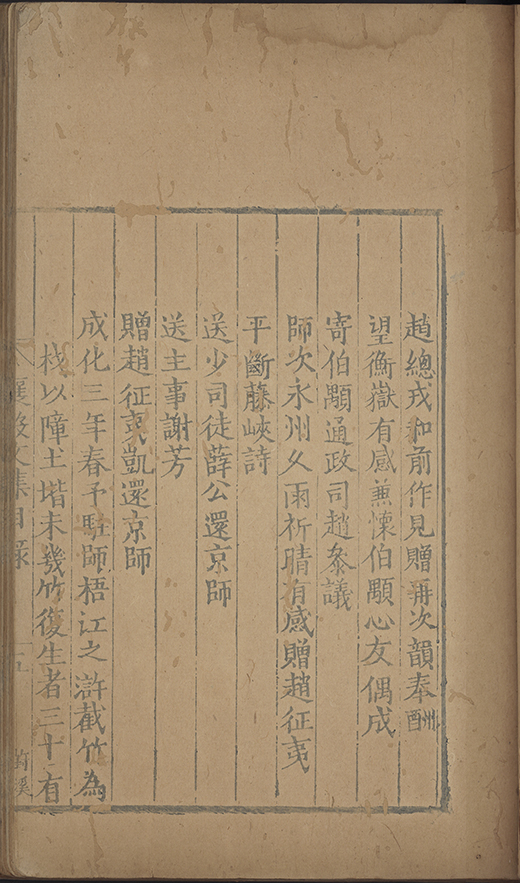 趙總戎和前作見贈再次韻奉酬
望衡嶽有感兼懷伯顒心友偶成
寄伯顒通政司趙叅議
師次永州久雨祈晴有感贈趙征夷
平斷藤峽詩
送少司徒薛公還京師
送主事謝芳
贈趙征夷凱還京師
成化三年春予駐師梧江之滸截竹為
杙以障土堦未幾竹復生者三十有
襄毅文集目錄